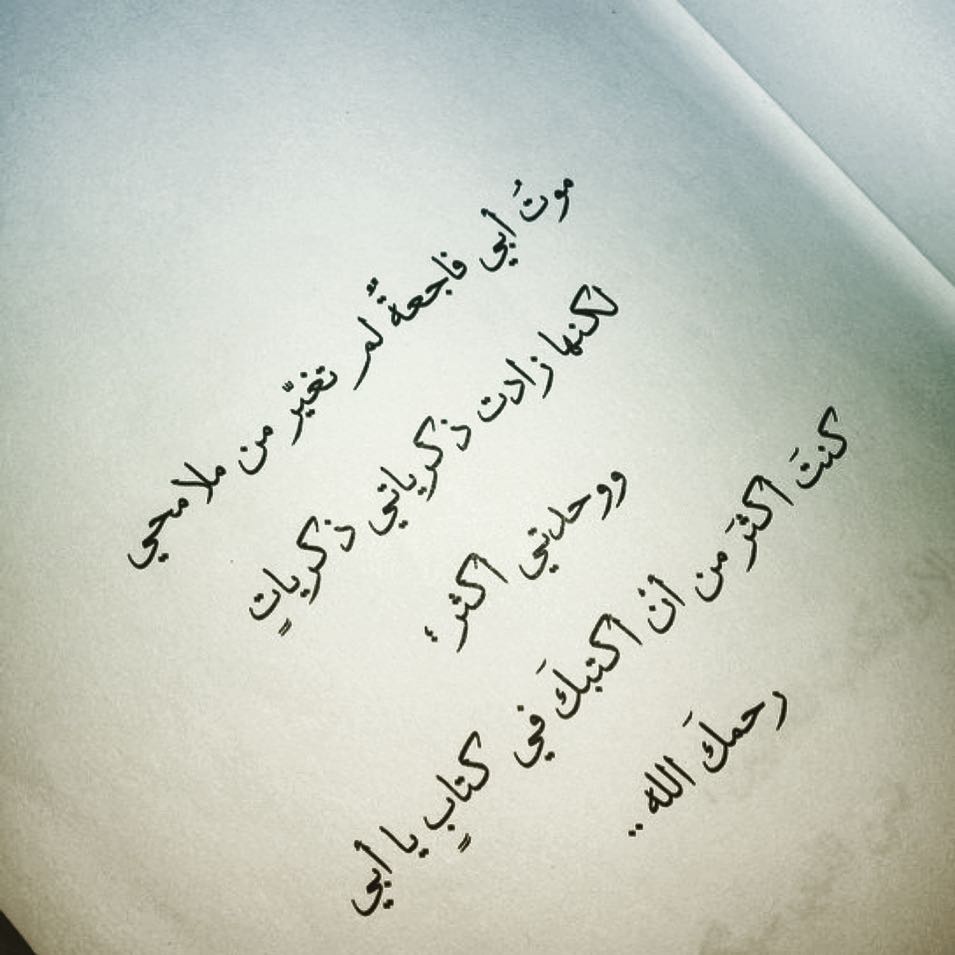 موتُ أبي فاجعةٌ لم تغيّر من ملامحي
لكنها زادت ذكرياتي ذكرياتٍ
ووحدتي أكثر،
كنتَ أكثرَ من أنْ أكتبكَ في كتابٍ يا أبي
رحمكَ الله..